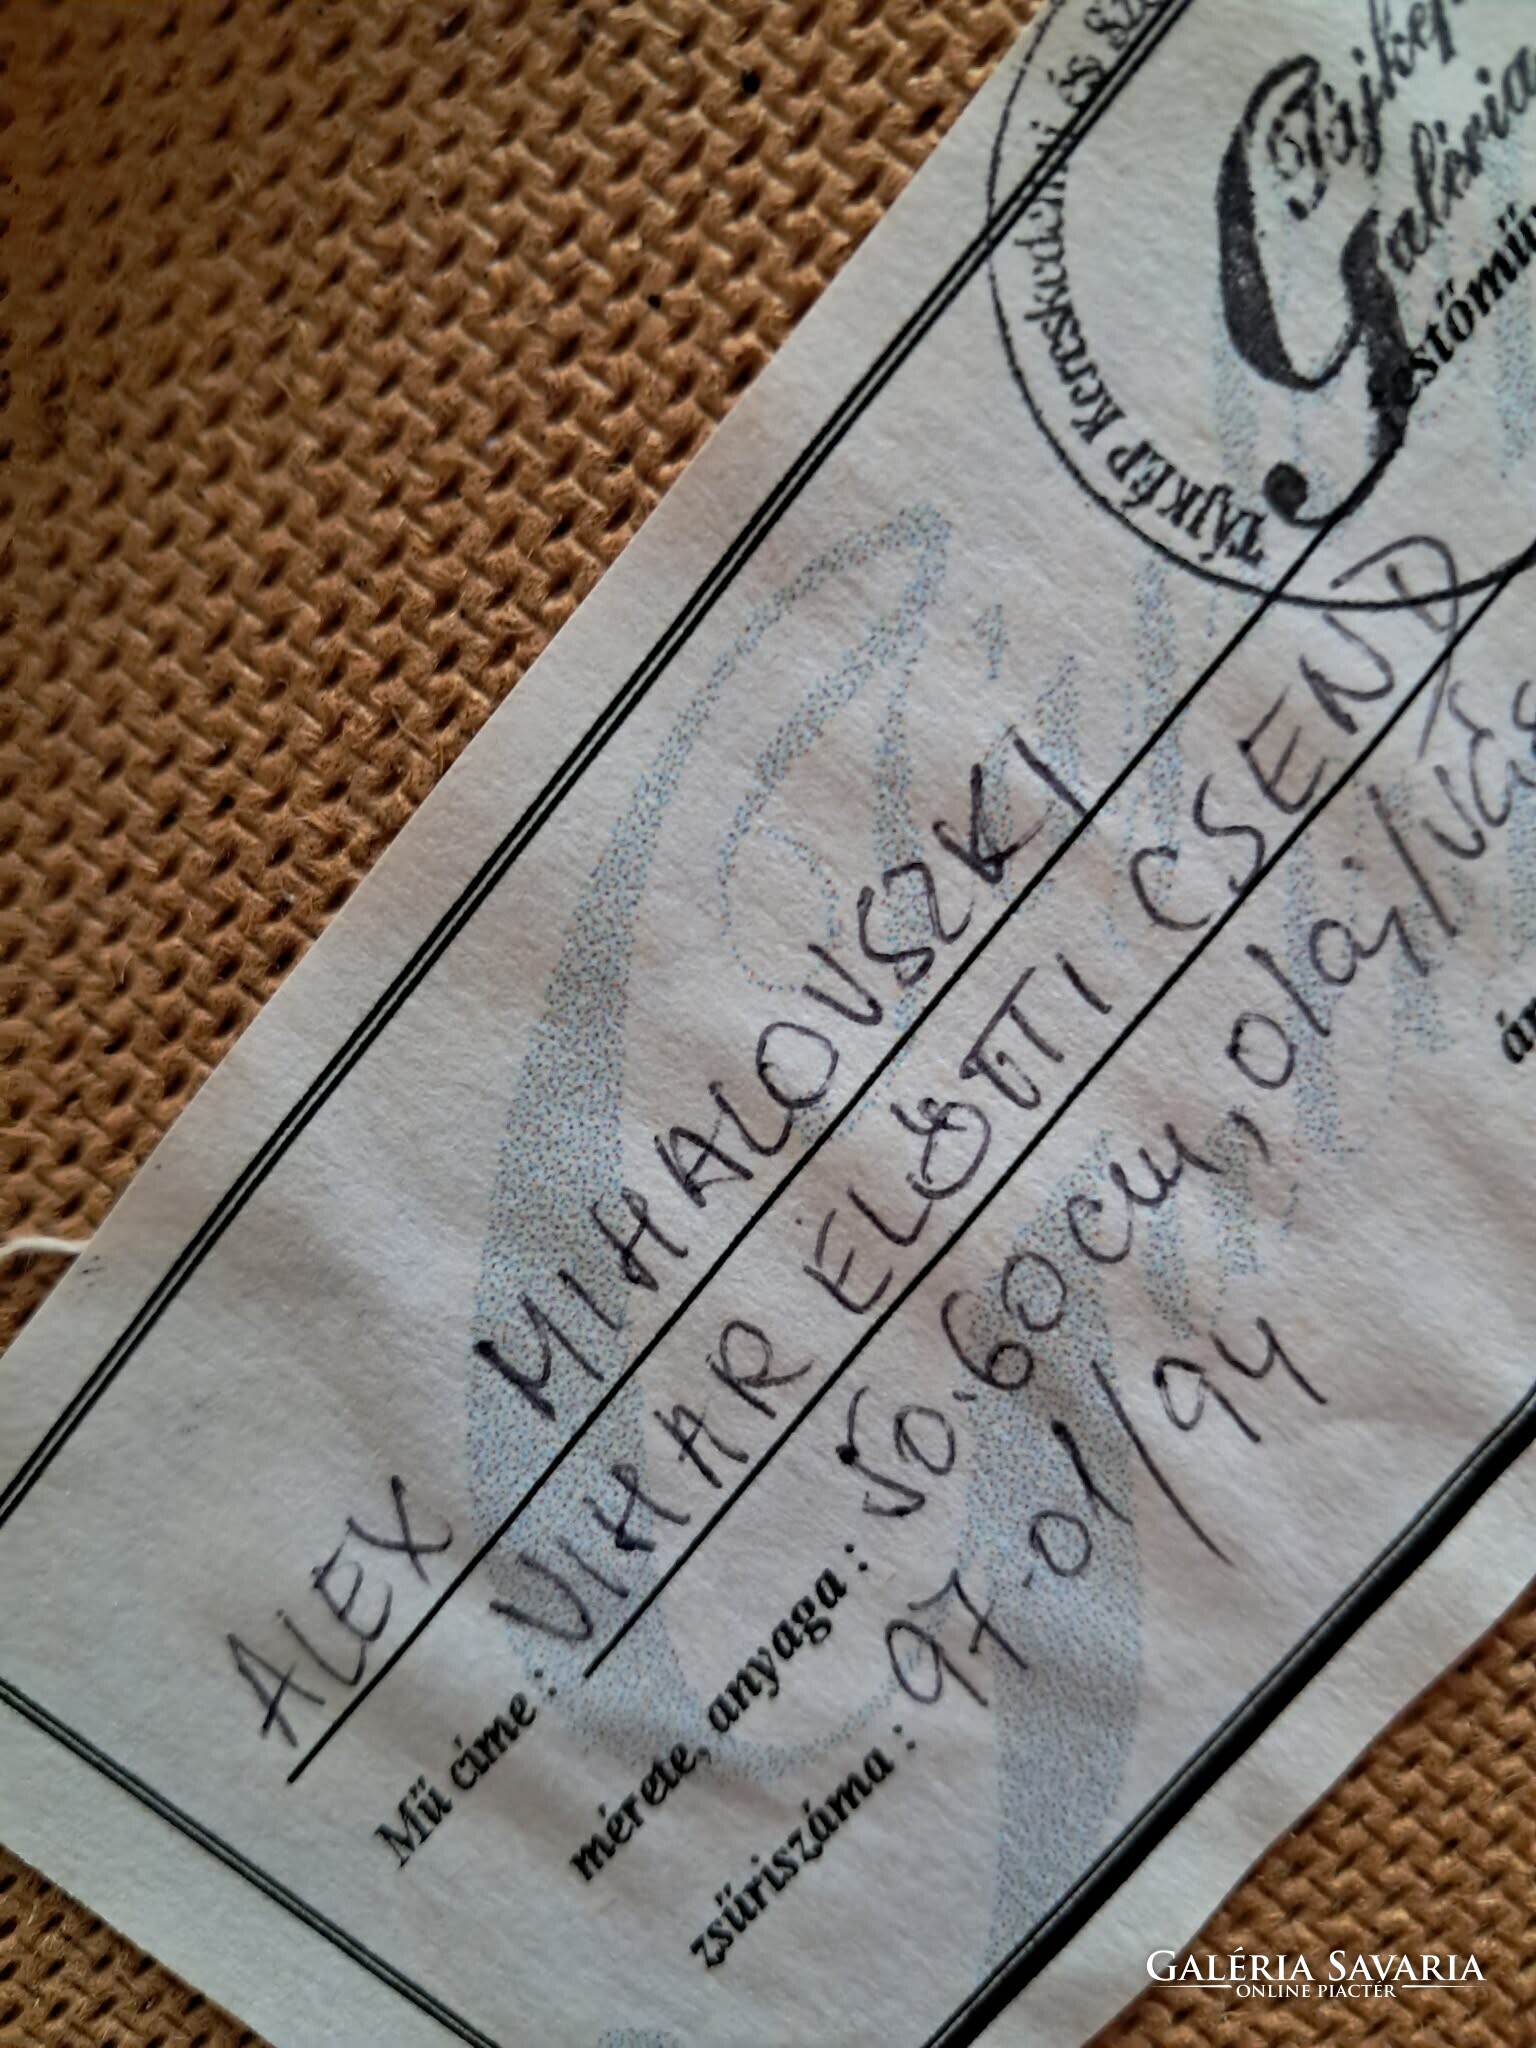 TÁJKÉP Kereskedelmi és Sz
Tájkép
Galéria
estőmű
ALEX MIHALOVSZKI
Mű címe : VIHAR ELŐTTI CSEND
mérete, anyaga : 50.60cm, olaj/vás
zsűriszáma : 97.01/94
ár
GALÉRIA SAVARIA
ONLINE PIACTÉR